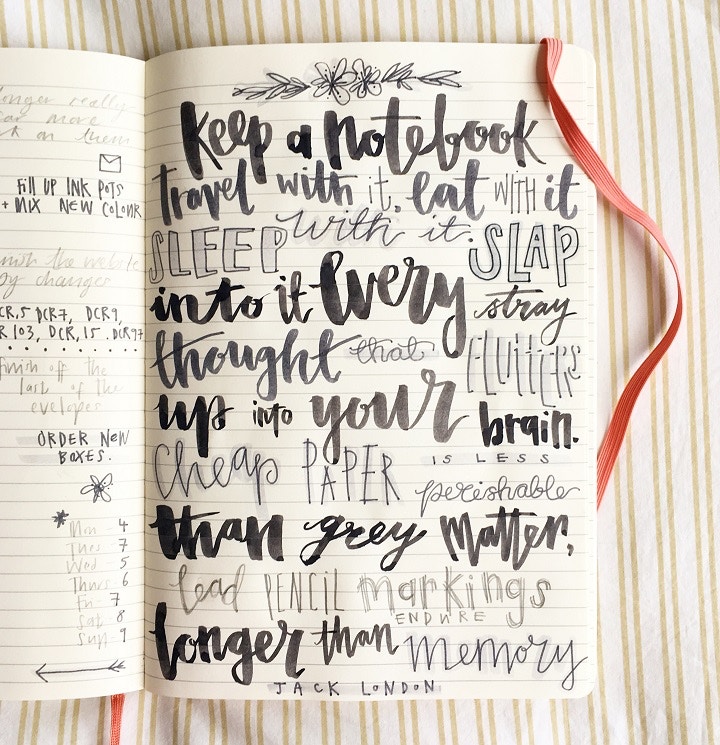 longer really
more
on them
FILL UP INK POTS
+ MIX NEW COLOUR
the website
changes
DCR,5 DCR7, DCR9,
103, DCR,15. DCR97
finish off the
last of the
evelopes
ORDER NEW
BOXES.
Mon 4
Tues 7
Wed 5
Thurs 6
Fri 7
Sat 8
Sun 9
Keep a notebook
travel with it, eat WITH it
SLEEP with it. SLAP
into it Every stray
thought that FLUTTERS
up into your brain.
Cheap PAPER IS LESS
perishable
than grey matter,
lead PENCIL markings
ENDURE
longer than memory
JACK LONDON